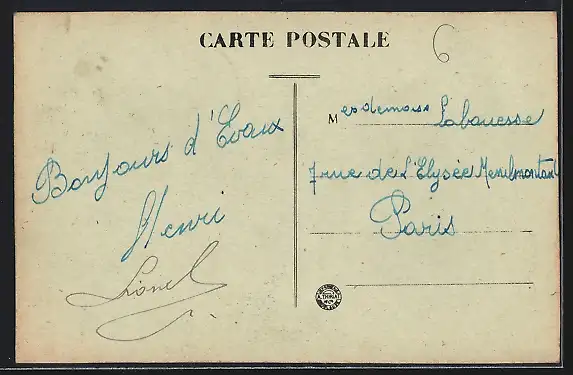 CARTE POSTALE
6
Bonjours d'Evaux
Henri
Lionel
Mesdemois Labauesse
7 rue de l'Elysée Menilmontant
Paris